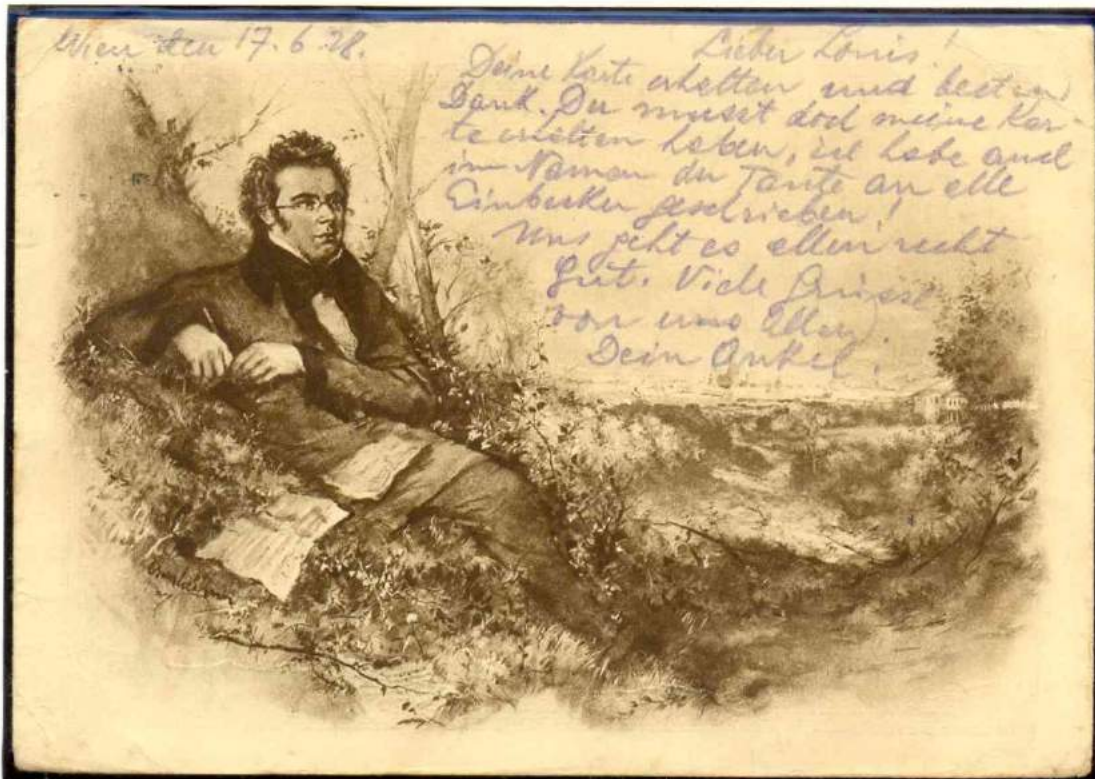 Wien den 17.6.28.
Lieber Louis!
Deine Karte erhalten und besten
Dank. Du musst doch meine Kar-
te erhalten haben, ich habe auch
im Namen der Tante an alle
Einbecker geschrieben!
Uns geht es allen recht
gut. Viele Grüsse
von uns Allen
Dein Onkel.